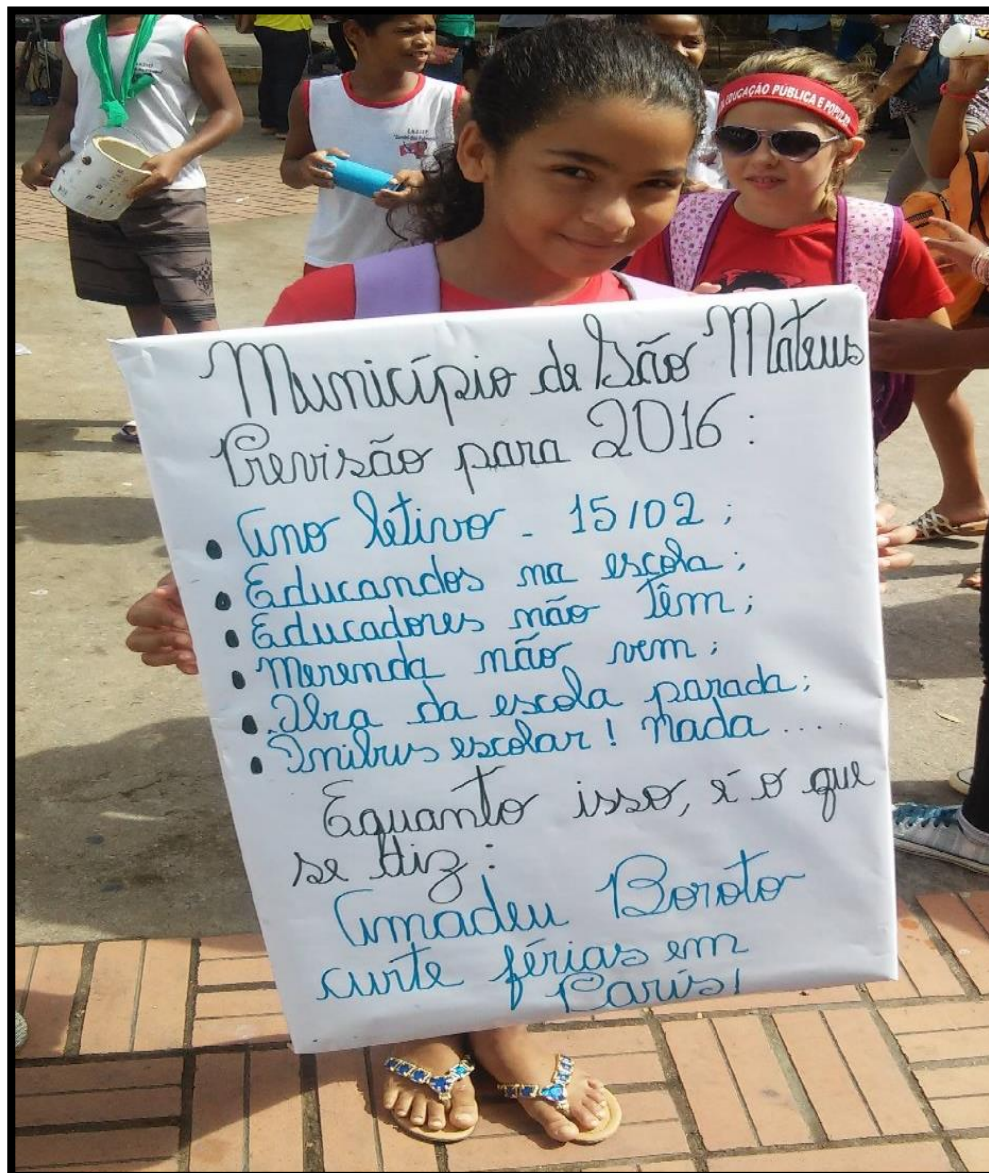 EDUCAÇÃO PÚBLICA E POPULAR
Município de São Mateus
Previsão para 2016:
• Ano letivo - 15/02;
• Educandos na escola;
• Educadores não têm;
• Merenda não vem;
• Obra da escola parada;
• Ônibus escolar! Nada...
Equanto isso, é o que
se diz:
Amadeu Boroto
curte férias em
Paris!